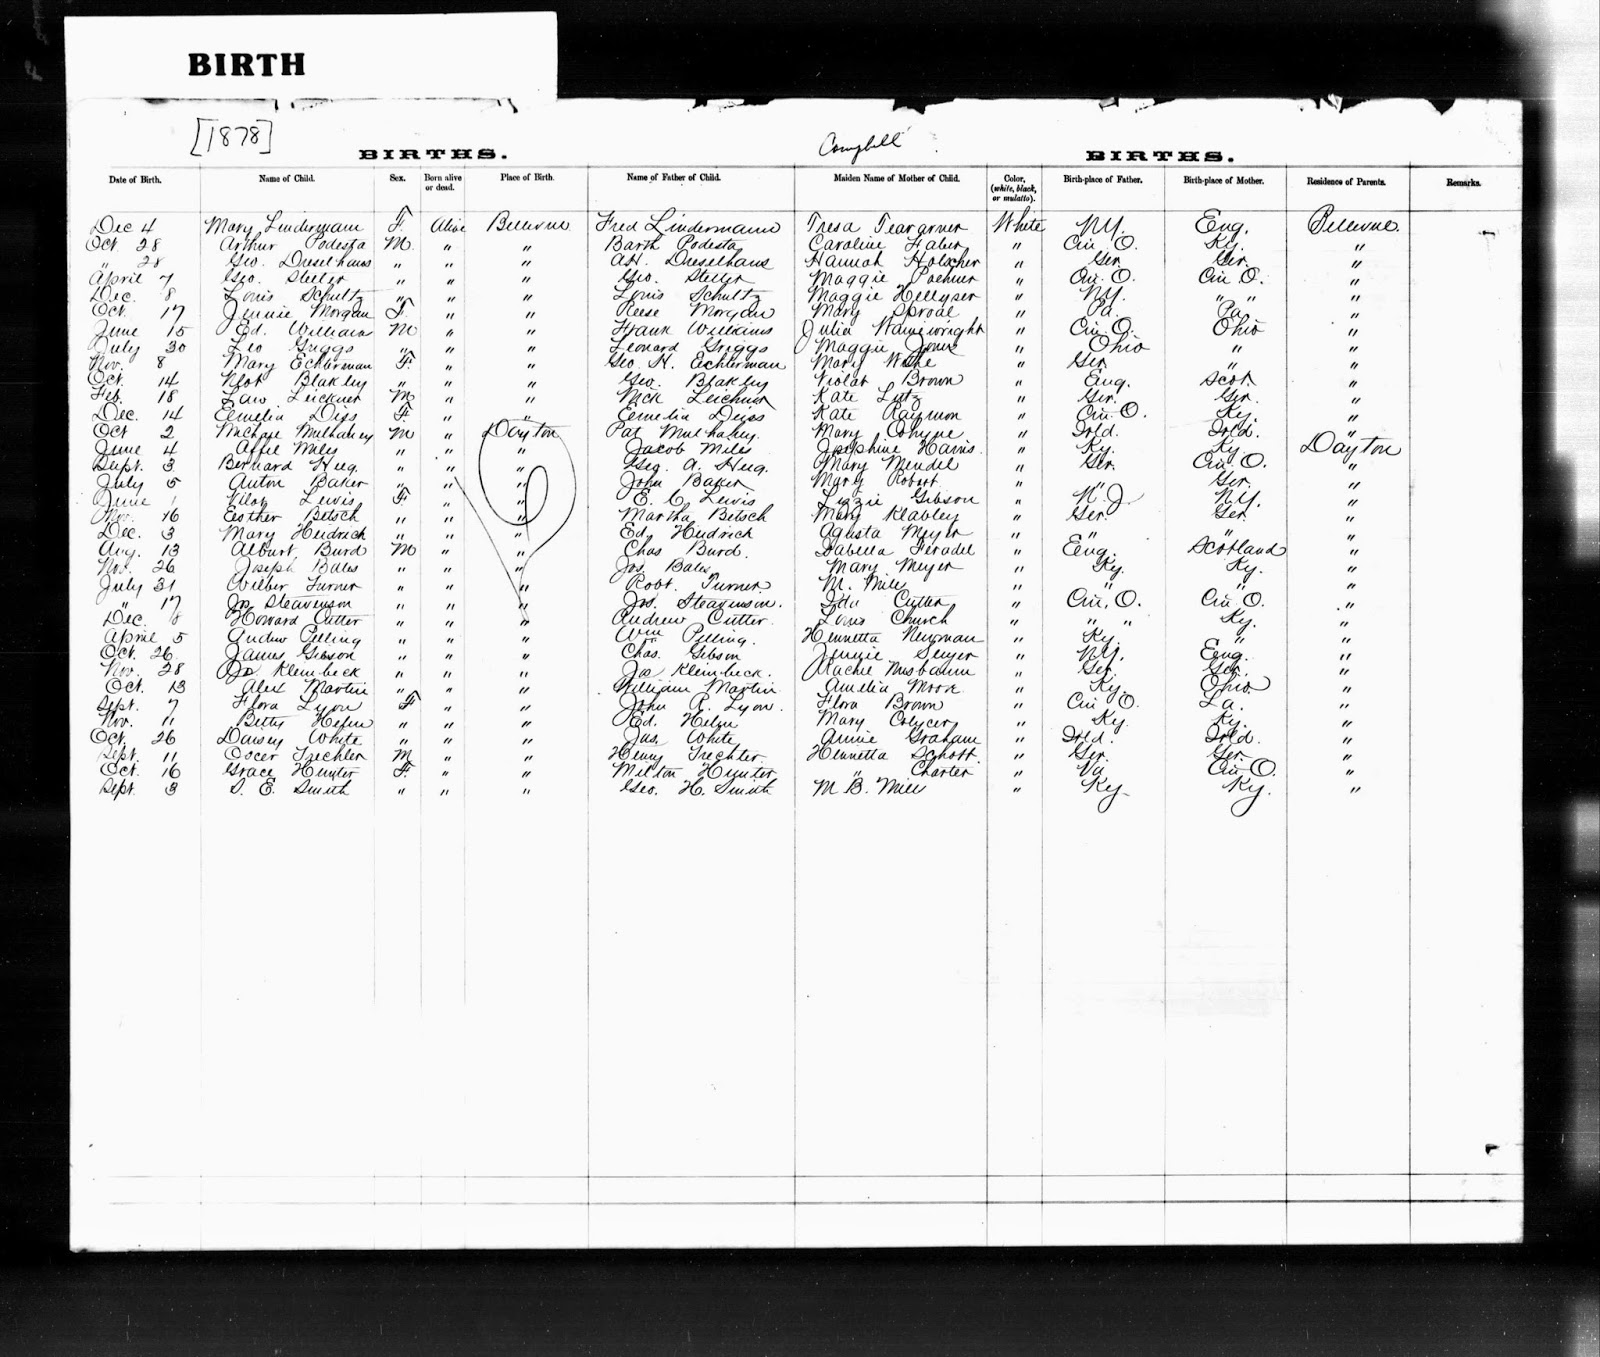 BIRTH
[1878]
BIRTHS. Campbell BIRTHS.
Date of Birth. Name of Child. Sex. Born alive or dead. Place of Birth. Name of Father of Child. Maiden Name of Mother of Child. Color, (white, black, or mulatto). Birth-place of Father. Birth-place of Mother. Residence of Parents. Remarks.
Dec 4 Mary Linderman F. Alive Bellevue Fred Lindermann Tresa Teargarver White N.Y. Eng. Bellevue
Oct 28 Arthur Podesta M. " " Barth Podesta Caroline Faber " Cin O. Ky. "
" 28 Geo. Dreselhaus " " " A.H. Dreselhaus Hannah Holscher " Ger. Ger. "
April 7 Geo. Stelter " " " Geo. Stelter Maggie " Cin O. Cin O. "
Dec. 8 Louis Schultz " " " Louis Schultz Maggie Hellyser " N.Y. " " "
Oct. 17 Jennie Morgan F. " " Reese Morgan Mary Sproal " Pa. Pa. "
June 15 Ed. Williams M " " Frank Wilkins Julia Wainwright " Cin O. Ohio "
July 30 Leo Griggs " " " Leonard Griggs Maggie Jones " Ohio " "
Nov. 8 Mary Echterman F. " " Geo. H. Echterman Mary " Ger. " "
Oct. 14 Blakley " " " Geo. Blakley Violat Brown " Eng. Scot. "
Feb. 18 Law Leickner M " " Nick Leichner Kate Lutz " Ger. Ger. "
Dec. 14 Eemelia Diss F " " Eemelia Deiss Kate Raymon " Cin O. Ky. "
Oct 2 Michael Mulhaley M " Dayton Pat Mulhaley. Mary " Irld. Irld. "
June 4 Affie Miles " " " Jacob Miles Josephine Harris. " Ky. Ky. Dayton
Sept. 3 Bernard Hug. " " " Geo. A. Hug. Mary Mendel " Ger. Cin O. "
July 5 Anton Baker " " " John Baker Mary Robert. " " Ger. "
June 1 Lewis F. " " E. C. Lewis Lizzie Gibson " N.J. N.Y. "
Nov. 16 Esther Betsch " " " Martha Betsch Mary Klabley " Ger. Ger. "
Dec. 3 Mary Heidrich " " " Ed. Heidrich Agusta Meyer " " " "
Aug. 13 Alburt Burd M " " Chas Burd. Isabella Feradel " Eng. Scotland "
Nov. 26 Joseph Bales " " " Jos Bales Mary Meyer " Ky. Ky. "
July 31 Wilber Turner " " " Robt. Turner. M. Mills " " " "
" 17 Jos Steavenson " " " Jos. Steavenson. Ida Cutter " Cin, O. Cin O. "
Dec. 8 Howard Cutter " " " Andrew Cutter. Louis Church " " " Ky. "
April 5 Andrew Pelling " " " Wm Pelling. Hennetta Newman " Ky. " "
Oct. 26 James Gibson " " " Chas. Gibson Jennie " N.Y. Eng. "
Nov. 28 Jo. Kleimbeck " " " Jo Kleimbeck. Rachie Nusbaum " Ger. Ger. "
Oct. 13 Alex Martin " " " William Martin Amelia Moon " Ky. Ohio "
Sept. 7 Flora Lyon F " " John R. Lyon. Flora Brown " Cin O. La. "
Nov. 11 Betty Helm " " " Ed. Helm Mary " Ky. Ky. "
Oct. 26 Daisey White " " " Jas. White Annie Graham " Irld. Irld. "
Sept. 11 Oscer Trechler M " " Henry Trechter Hennetta Schott " Ger. Ger. "
Oct. 16 Grace Hunter F " " Milton Hunter " Charter " Va Cin O. "
Sept. 3 S. E. Smith " " " Geo. H. Smith M B. Mill " Ky. Ky. "